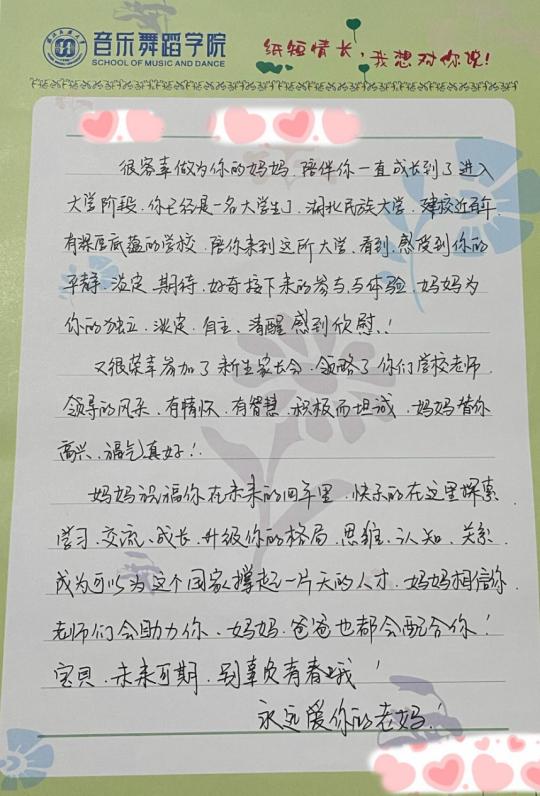 音乐舞蹈学院
SCHOOL OF MUSIC AND DANCE
纸短情长，我想对你说！
很荣幸做为你的妈妈，陪伴你一直成长到了进入
大学阶段，你已经是一名大学生了，湖北民族大学，建校近百年，
有深厚底蕴的学校，陪你来到这所大学，看到、感受到你的
平静、淡定、期待、好奇接下来的参与与体验，妈妈为
你的独立、淡定、自主、清醒感到欣慰！
又很荣幸参加了新生家长会，领略了你们学校老师、
领导的风采，有情怀、有智慧、积极而坦诚，妈妈替你
高兴，福气真好！
妈妈祝福你在未来的四年里，快乐的在这里探索、
学习、交流、成长，升级你的格局、思维、认知、关系，
成为可以为这个国家撑起一片天的人才，妈妈相信你，
老师们会助力你，妈妈、爸爸也都会配合你！
宝贝，未来可期，别辜负青春哦！
永远爱你的老妈！